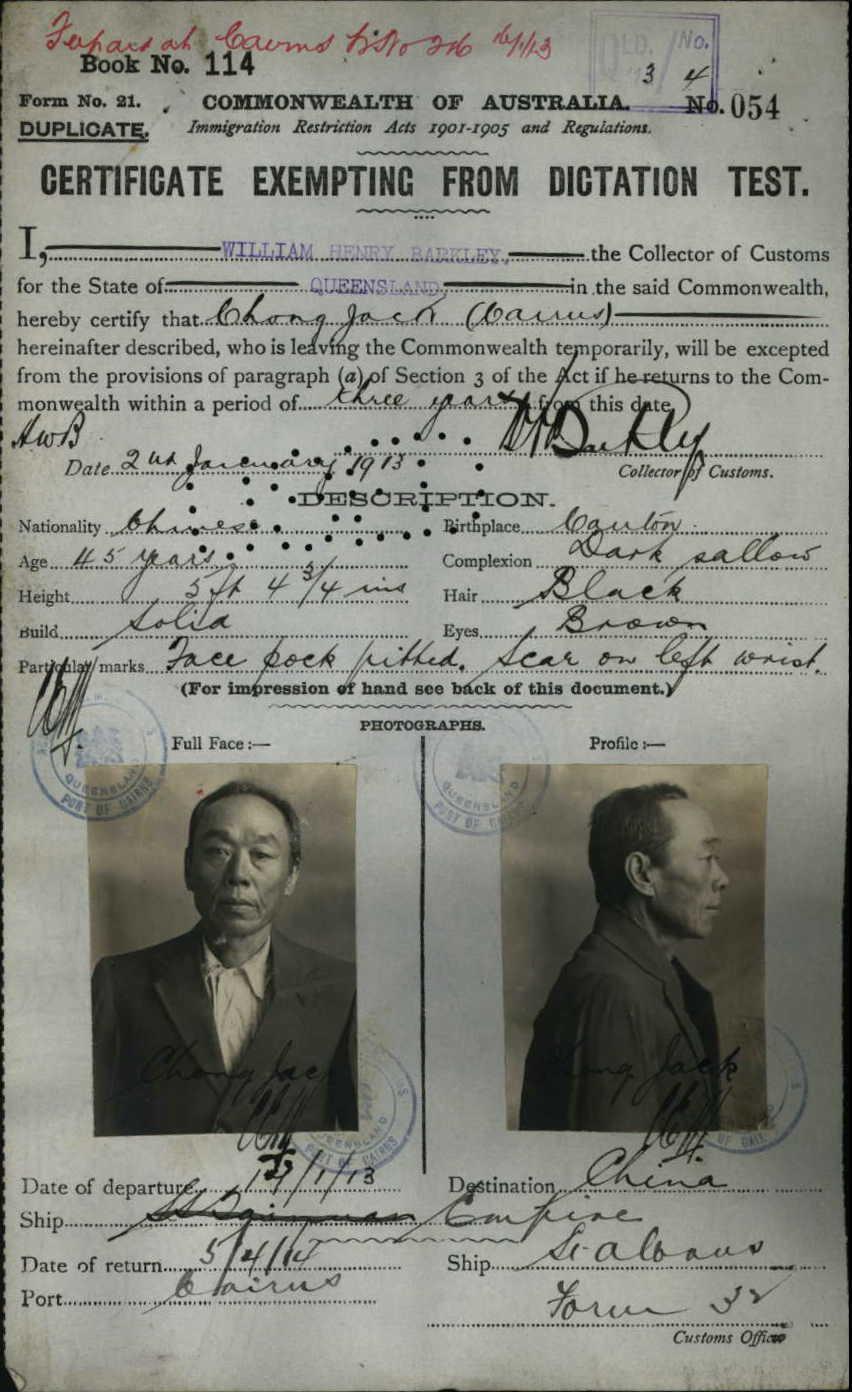 Cairns 16/1/13
QLD. No.
Book No. 114
3 4
Form No. 21. COMMONWEALTH OF AUSTRALIA. No. 054
DUPLICATE. Immigration Restriction Acts 1901-1905 and Regulations.
CERTIFICATE EXEMPTING FROM DICTATION TEST.
I, WILLIAM HENRY BARKLEY, the Collector of Customs
for the State of QUEENSLAND, in the said Commonwealth,
hereby certify that Chong Jack (Cairns)
hereinafter described, who is leaving the Commonwealth temporarily, will be excepted
from the provisions of paragraph (a) of Section 3 of the Act if he returns to the Com-
monwealth within a period of three years from this date
AWB WHBarkley
Date 2nd January 1913 Collector of Customs.
DESCRIPTION.
Nationality Chinese Birthplace Canton
Age 45 years Complexion Dark sallow
Height 5 ft 4 3/4 ins Hair Black
Build Solid Eyes Brown
Particular marks Face pock pitted. Scar on left wrist.
(For impression of hand see back of this document.)
PHOTOGRAPHS.
Full Face :— Profile :—
QUEENSLAND PORT OF CAIRNS
QUEENSLAND PORT OF CAIRNS
Chong Jack
Chong Jack
QUEENSLAND PORT OF CAIRNS
PORT OF CAIRNS
Date of departure /1/13 Destination China
Ship Empire
Date of return 5/4/14 Ship St Albans
Port Cairns
Form 32
Customs Officer